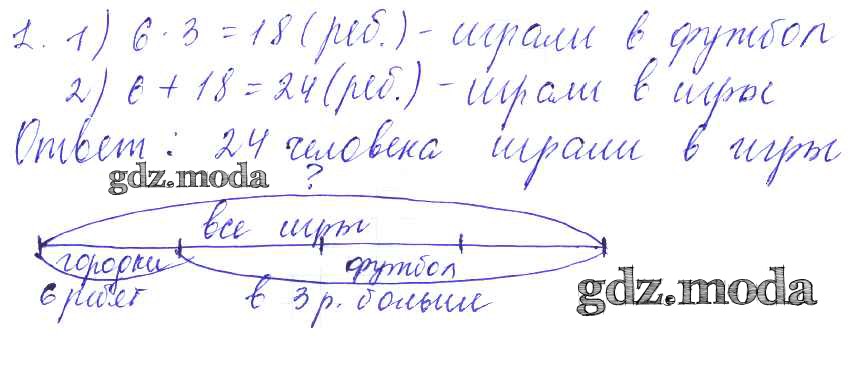 1. 1) 6 · 3 = 18 (реб.) - играли в футбол
2) 6 + 18 = 24 (реб.) - играли в игры
Ответ: 24 человека играли в игры
gdz.moda
?
все игры
городки футбол
6 ребят в 3 р. больше
gdz.moda